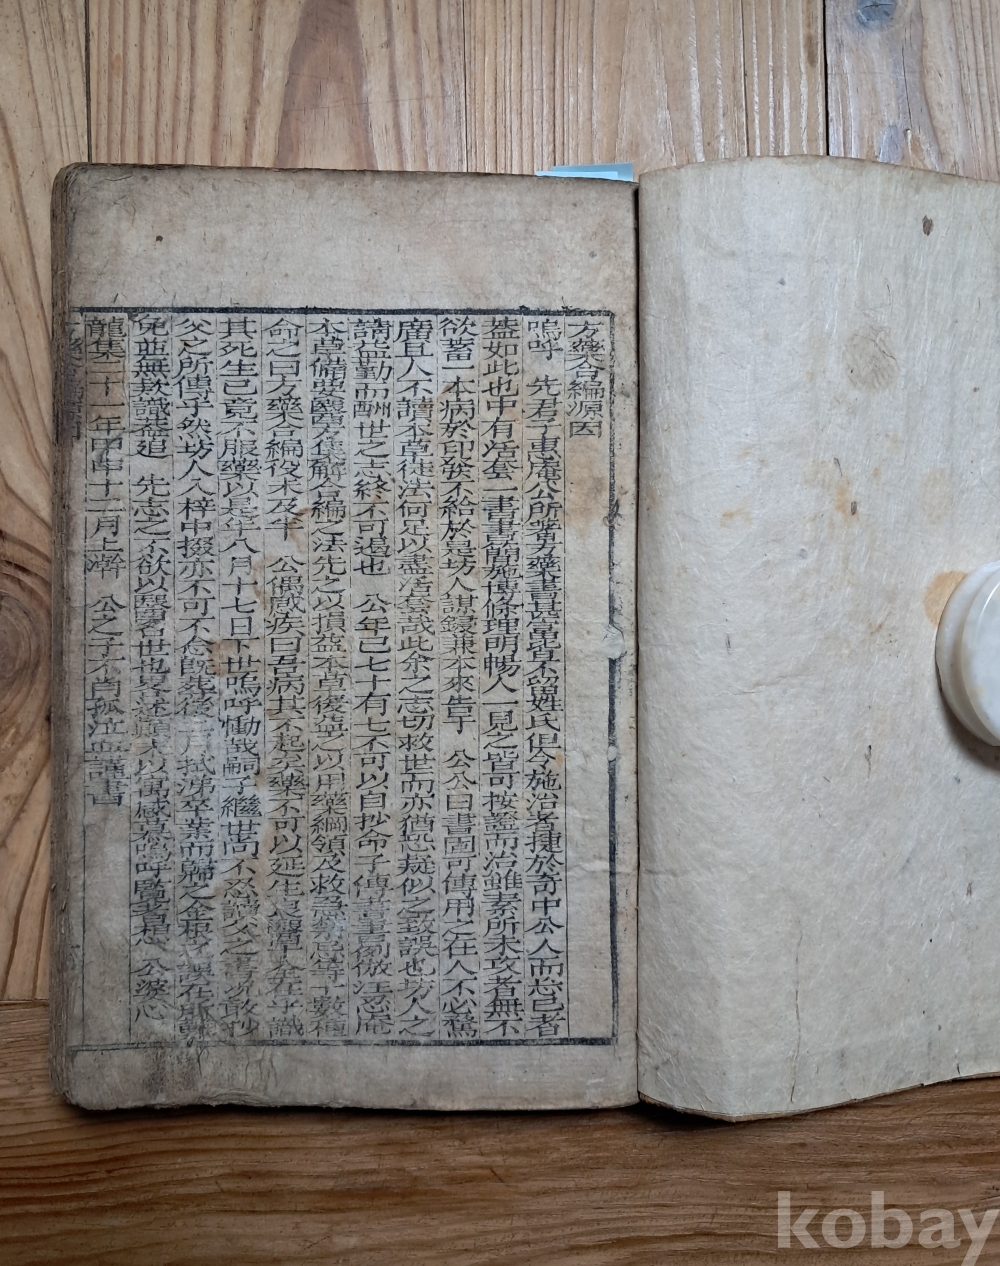 方藥合編源因
嗚呼 先君子惠庵公所著方藥書甚富皆不留姓氏但令施治者捷於奇中公人而忘己者
盖如此也中有活套一書書甚簡施博條理明暢人一見之皆可按證而治雖素所未攻者無不
欲蓄一本病於印發不給於是坊人謀鋟兼本來告于 公公曰書固可傳用之在人不必騖
廣且人不讀本草徒法何足以盡活套哉此余之志切救世而亦猶恐疑似之致誤也坊人之
請益勤而酬世之志終不可遏也 公年已七十有七不可以自抄命子傳書書例倣汪忍庵
本草備要醫方集解合編之法先之以損益本草後算之以用藥綱領及救急禁忌等十數種
命之曰方藥合編役未及半 公偶感疾曰吾病其不起矣藥不可以延生良醫單全在乎識
其死生已竟不服藥以是年八月十七日下世嗚呼慟哉嗣子繼世尙不忍讀父之書況敢抄
父之所傳乎然坊人入梓中掇亦不可不念旣葬後二月拭涕卒業而歸之金櫃 誤在脈難
免並無款識盖追 先志之不欲以醫名世也畧述顚末以寓感慕嗚呼覽者想 公婆心
龍集二十一年甲申十二月上澣 公之子不肖孤泣血謹書